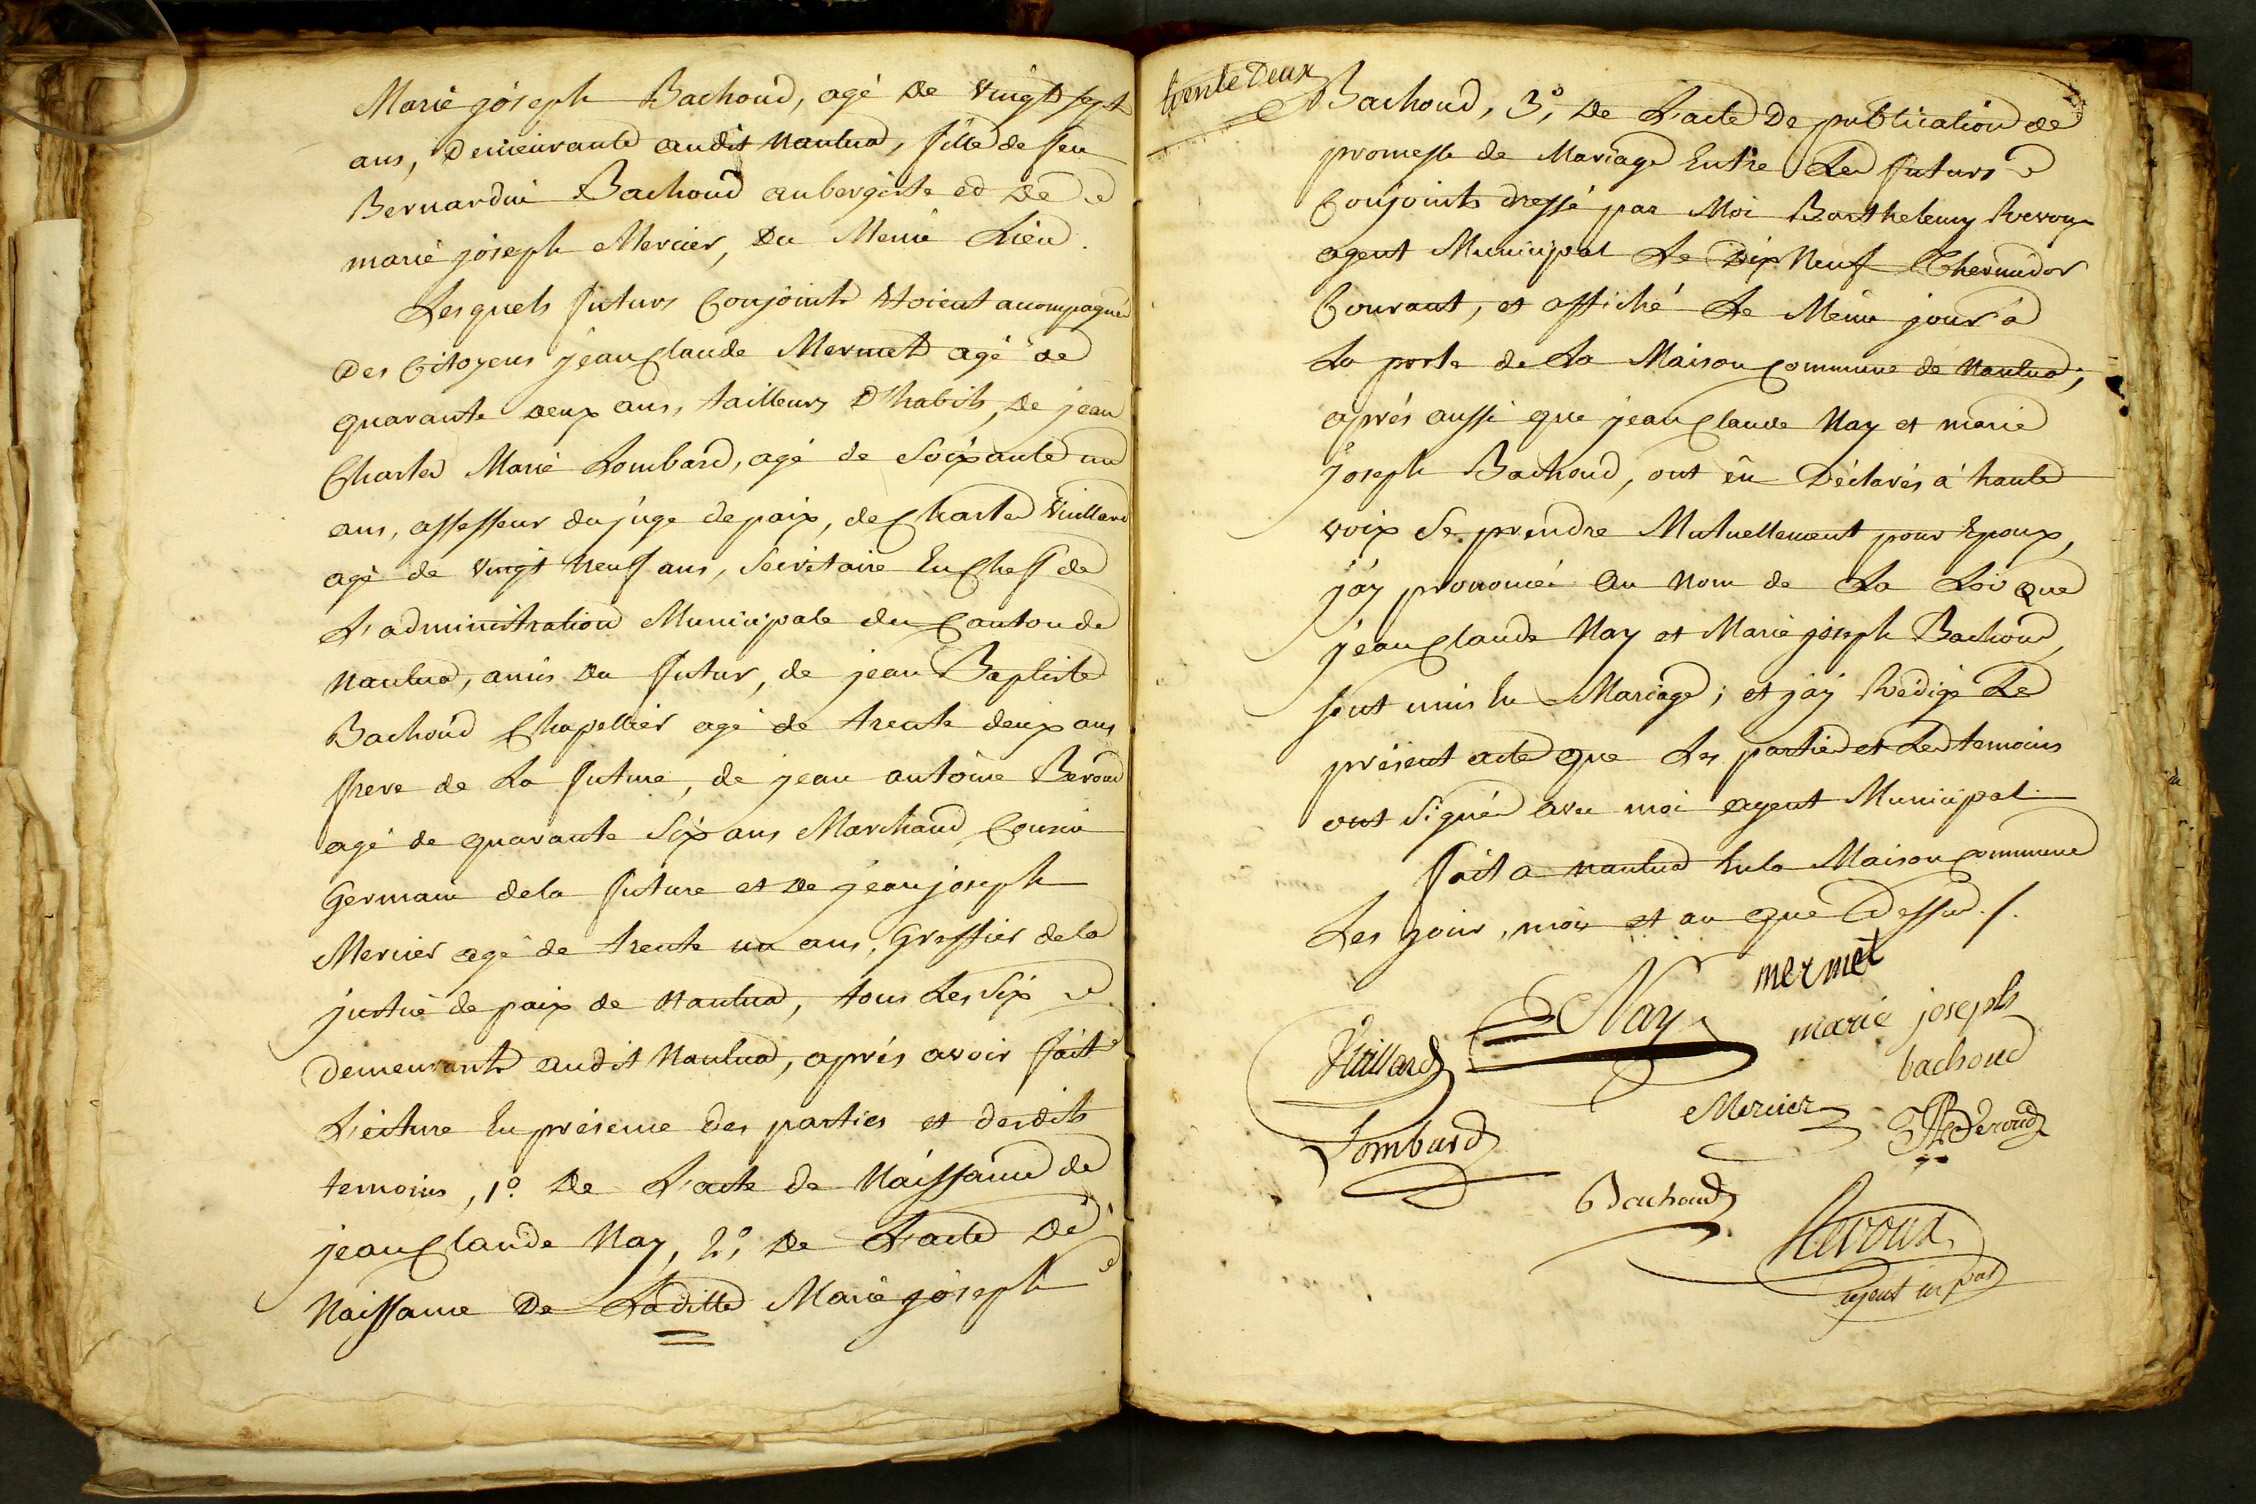 Marie joseph Bachoud, agé de vingt sept
ans, demeurante audit Nantua, fille de feu
Bernardin Bachoud aubergiste et de
marie joseph Mercier, du Meme Lieu.
Lesquels futurs Conjoints Etoient acompagnés
des Citoyens jean Claude Mermet agé de
quarante deux ans, tailleurs D'habits, de jean
Charles Marie Lombard, agé de Soixante un
ans, assesseur du juge de paix, de Charles Vuillard
agé de vingt neuf ans, Secrétaire En Chef de
L'administration Municipale du Canton de
Nantua, amis du futur, de jean Baptiste
Bachoud Chapellier agé de trente deux ans
frere de La future, de jean antoine Beroud
agé de quarante Six ans Marchand, Cousin
Germain dela future et de jean joseph
Mercier agé de trente un ans, Greffier dela
justice de paix de Nantua, tous Les Six
demeurants audit Nantua, aprés avoir fait
L'ecture En présence des parties et desdits
temoins, 1o. de L'acte de Naissance de
jean Claude Nay, 2o, de L'acte de
Naissance de Laditte Marie joseph
trente Deux
Bachoud, 3o, de L'acte de publication de
promesse de Mariage Entre Les futurs
Conjoints dressé par Moi Barthelemy Revoux
agent Municipal Le Dix Neuf Thermidor
Courant, et affiché Le Même jour à
La porte de La Maison Commune de Nantua;
aprés aussi que jean Claude Nay et marie
joseph Bachoud, ont eu Déclarés à haute
voix Se prendre Mutuellement pour Epoux,
j'ay prononcé au Nom de La Loi que
jean Claude Nay et Marie joseph Bachoud,
sont unis En Mariage; et j'ay Rédigé Le
présent acte que Les parties et Les temoins
ont Signés avec moi agent Municipal.
fait a Nantua En la Maison Commune
Les jour, mois et an que Dessus./.
Nay mermet
Vuillard marie joseph
bachoud
Mercier JABéroud
Lombard
Bachoud
Revoux
agent mpal